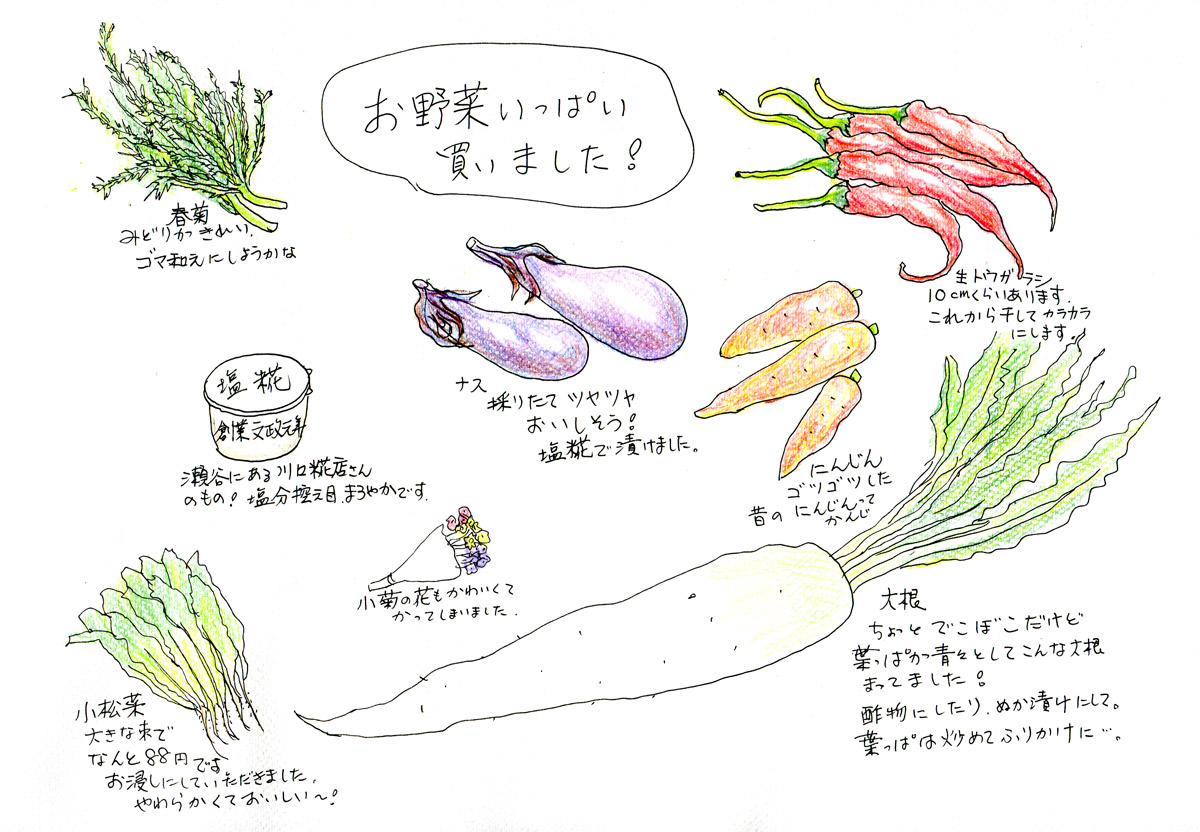 お野菜いっぱい
買いました!
春菊
みどりがきれい、
ゴマ和えにしようかな
生トウガラシ
10cmくらいあります。
これから干してカラカラ
にします。
ナス
採りたてツヤツヤ
おいしそう!
塩糀で漬けました。
にんじん
ゴツゴツした
昔のにんじんって
かんじ
塩糀
創業文政元年
瀬谷にある川口糀店さん
のもの!塩分控え目、まろやかです。
小菊の花もかわいくて
かってしまいました。
大根
ちょっとでこぼこだけど
葉っぱが青々としてこんな大根
まってました!
酢物にしたり、ぬか漬けにして。
葉っぱは炒めてふりかけに…。
小松菜
大きな束で
なんと88円です
お浸しにしていただきました、
やわらかくておいしい〜!